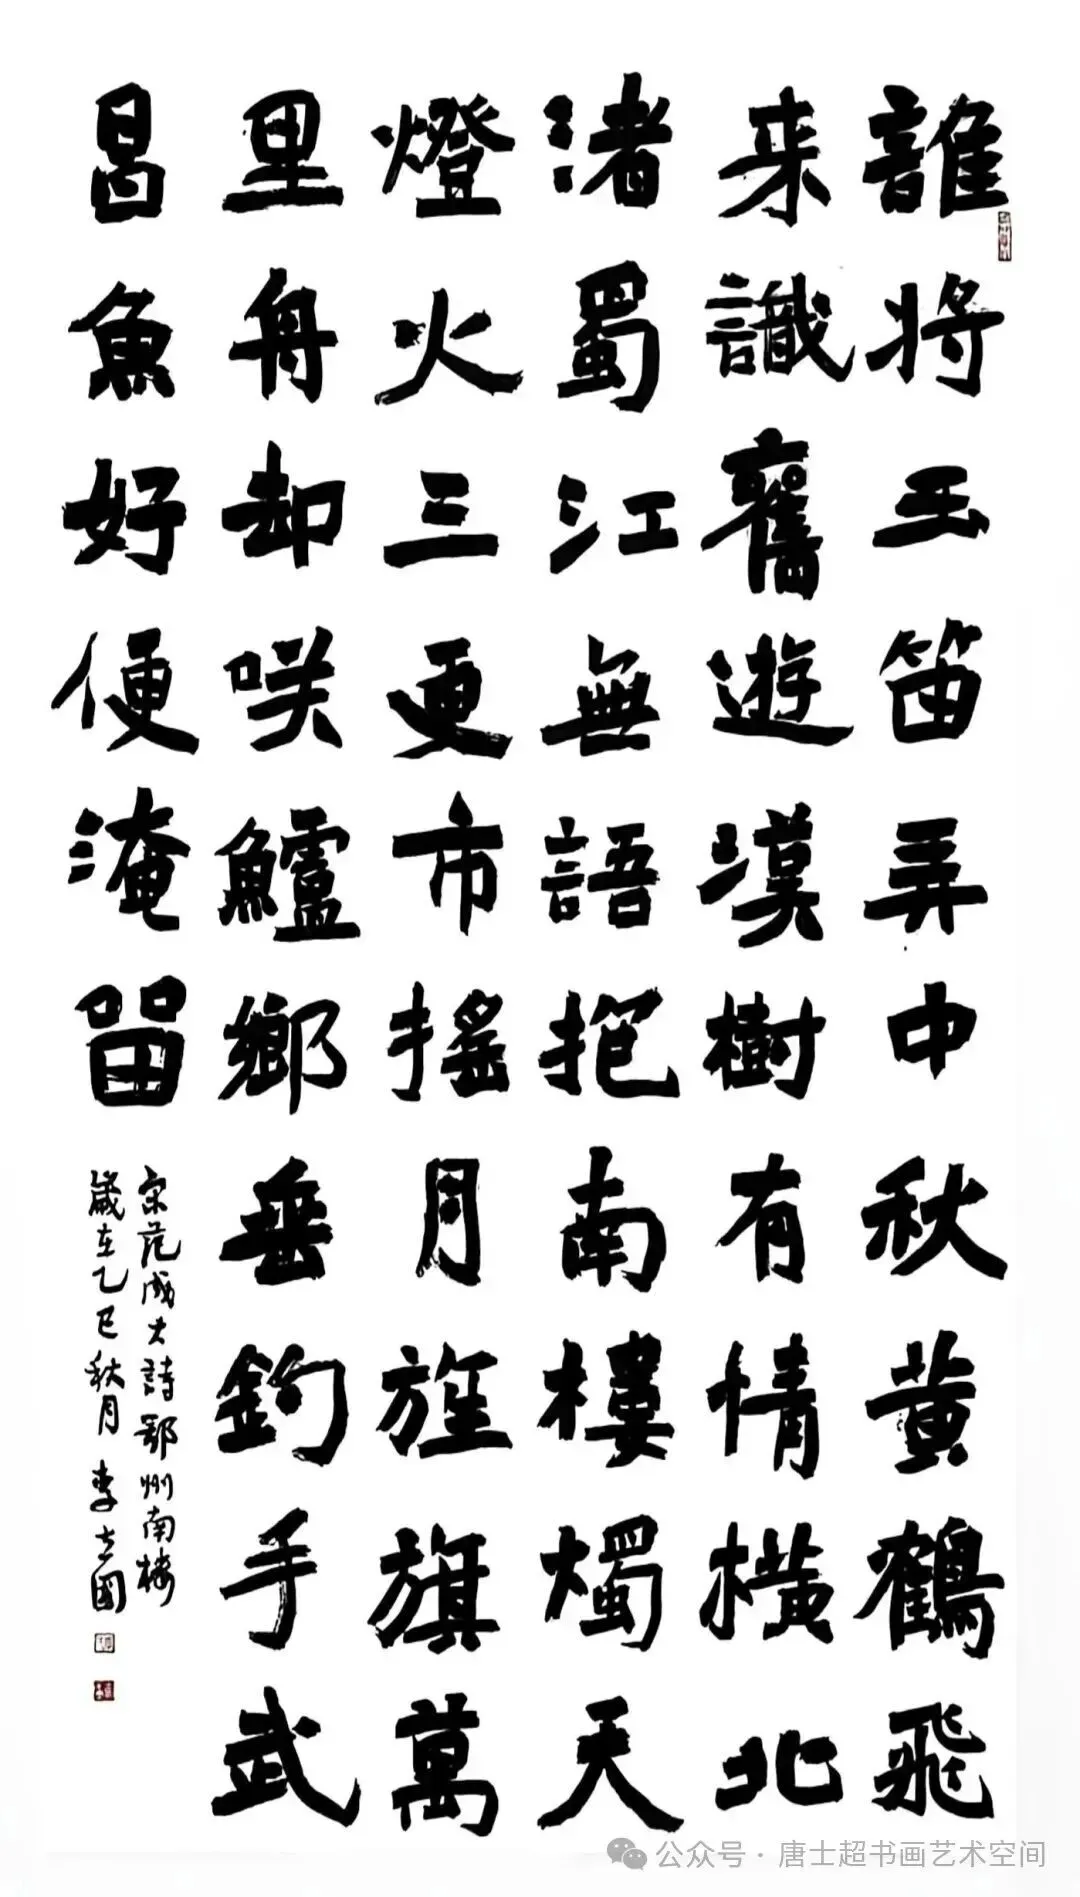 誰将玉笛弄中秋黄鶴飛
来識舊遊漢樹有情横北
渚蜀江無語抱南樓燭天
燈火三更市搖月旌旗萬
里舟却咲鱸鄉垂釣手武
昌魚好便淹留
宋范成大詩鄂州南楼
歲在乙巳秋月李國
公众号·唐士超书画艺术空间